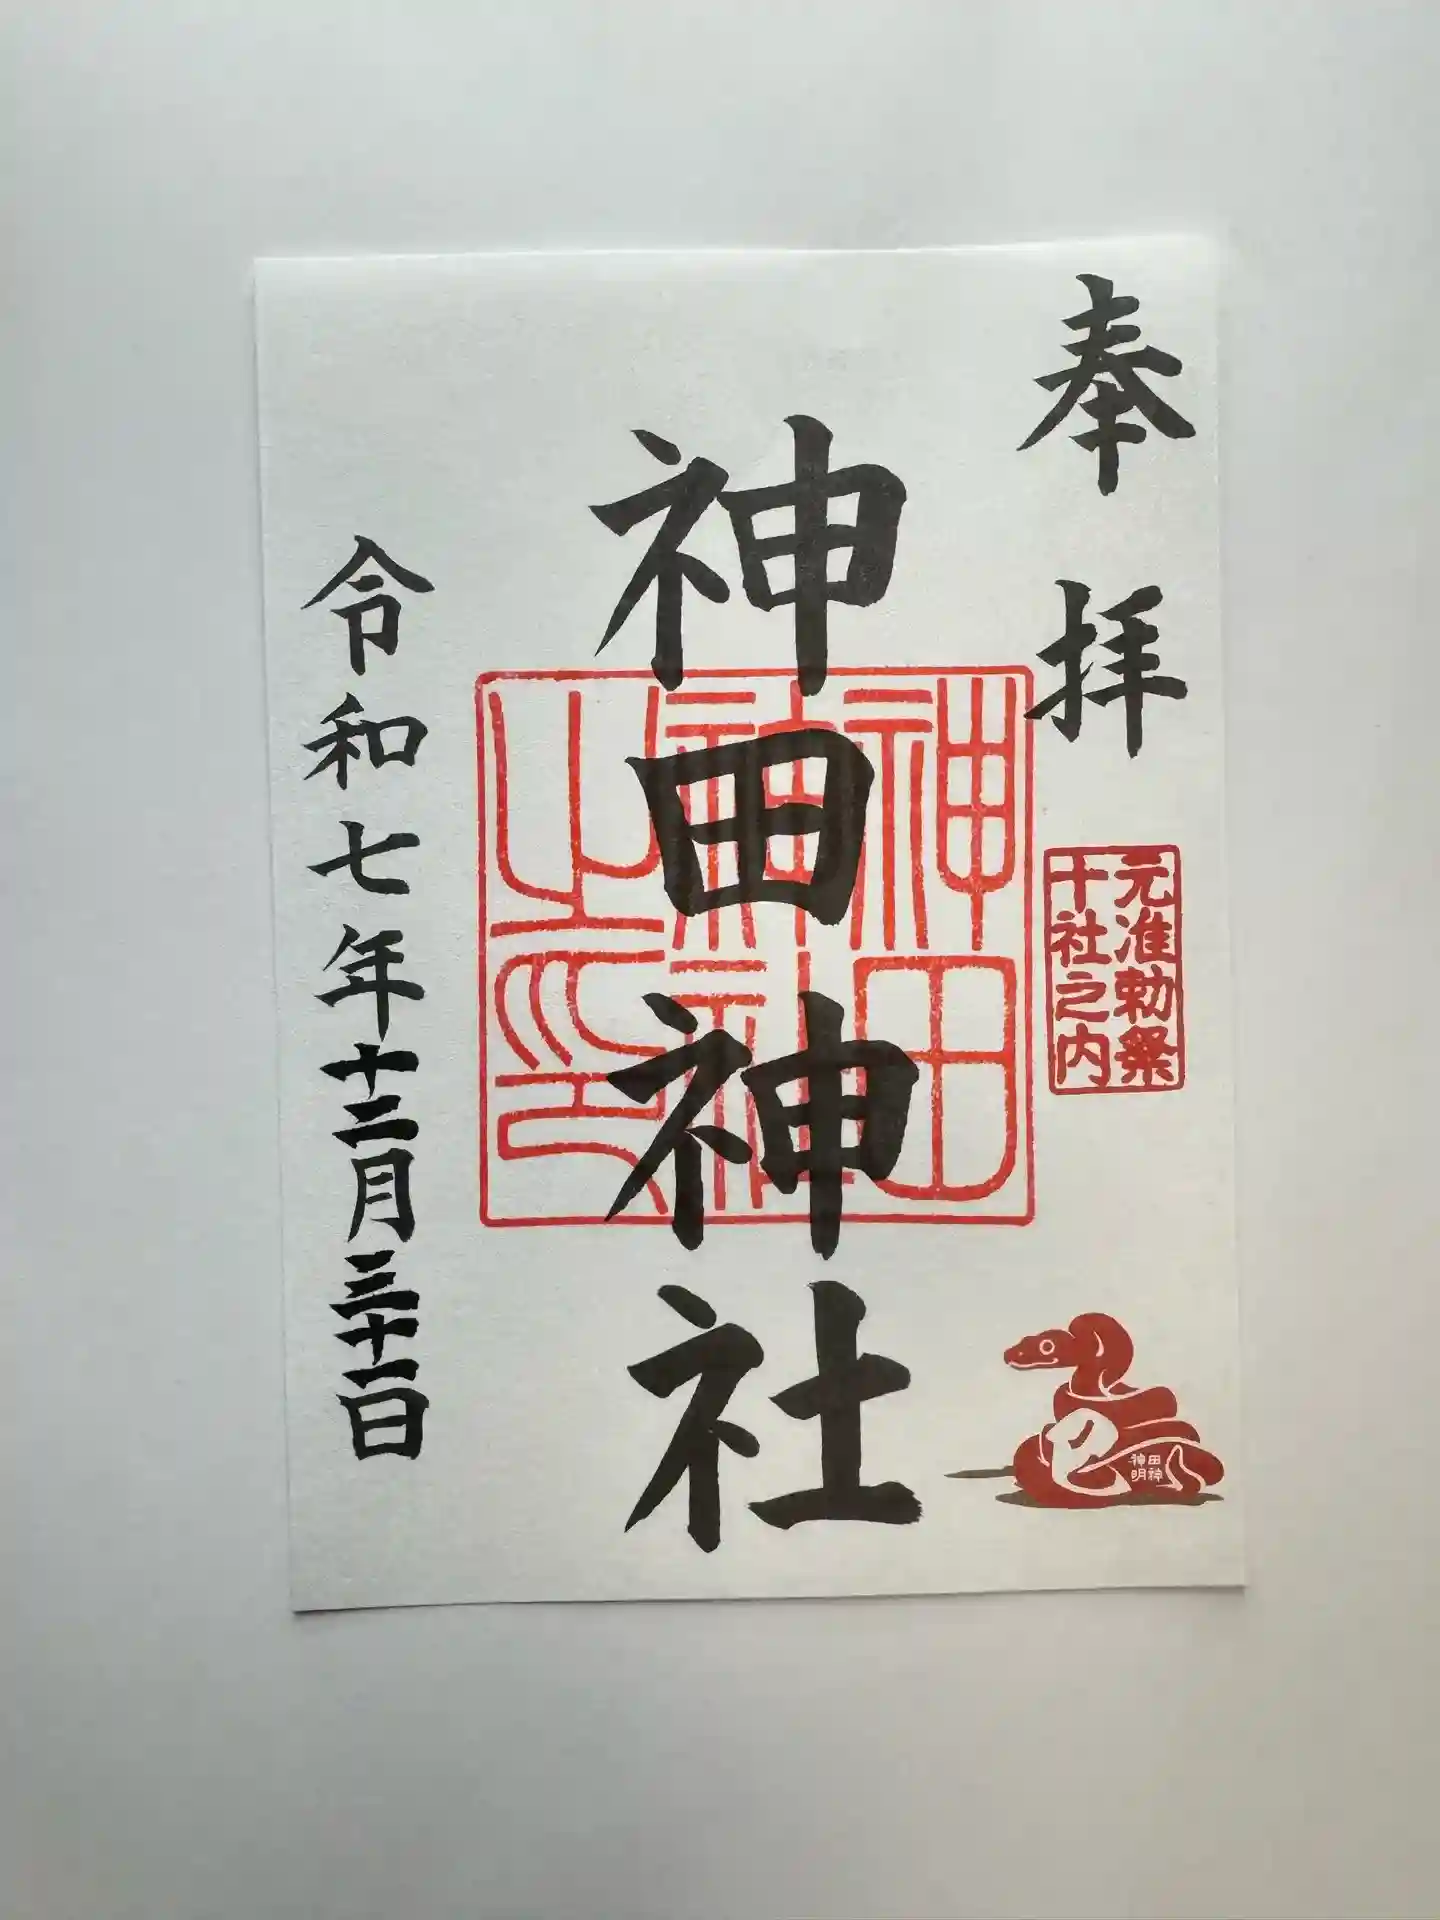 奉拝
元准勅祭
十社之内
神田神社
神田
神社
之印
令和七年十二月三十一日
巳
田神
神明